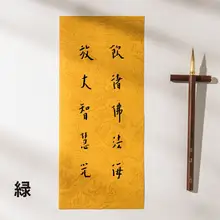 飲諸佛法海
放大智慧光
緑